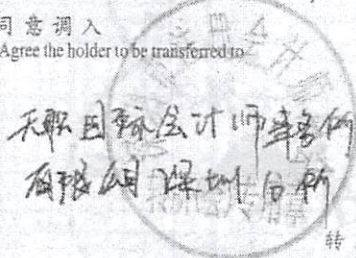 同意调入
Agree the holder to be transferred to
天职国际会计师事务所
有限公司深圳分所
转